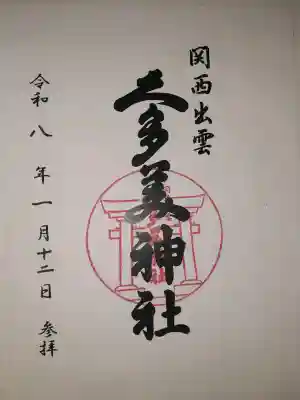 関西出雲
久多美神社
令和八年一月十二日 参拝